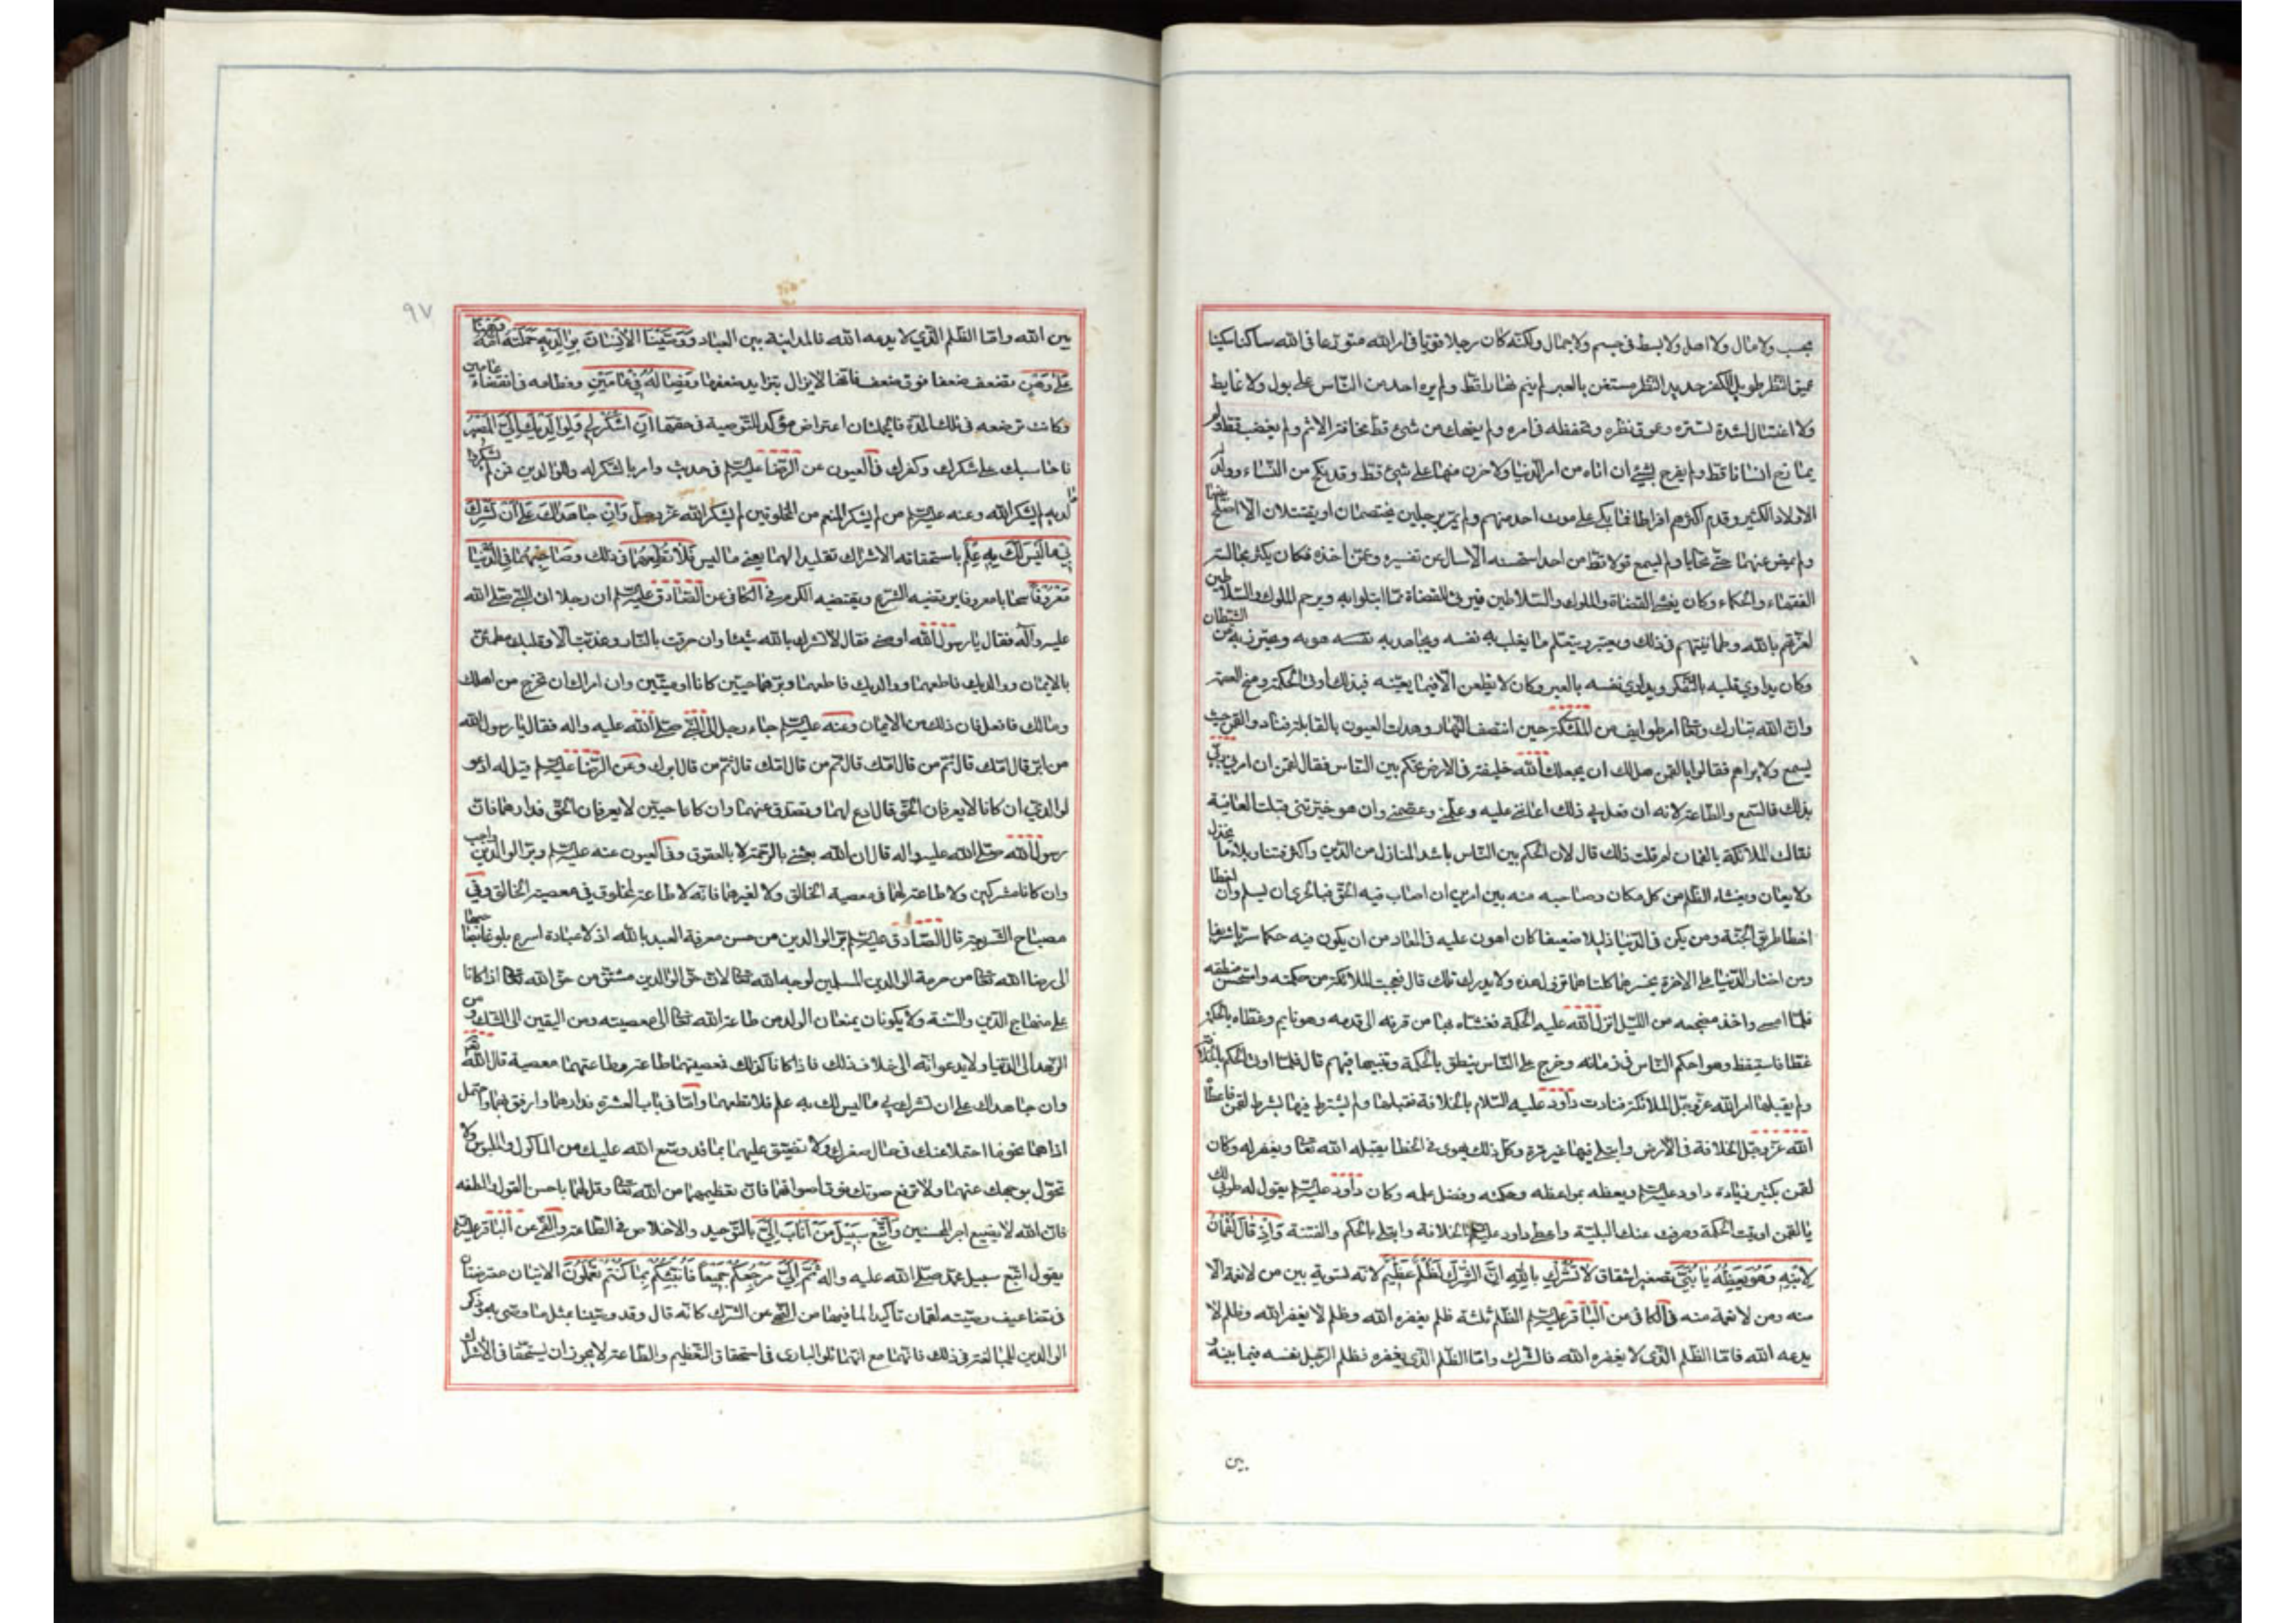 بحسب ولا مال ولا اصل ولا بسط فى جسم ولا جمال ولكنه كان رجلا قويا فى امر الله متورعا فى الله ساكنا سكينا
عميق النظر طويل الفكر حديد النظر مستغن بالعبر لم ينم نهارا قط ولم يره احد من الناس على بول ولا غايط
ولا اغتسال لشدة تستره وعموق نظره وتحفظه فى امره ولم يضحك من شئ قط مخافة الاثم ولم يغضب قط ولم
يمازح انسانا قط ولم يفرح بشئ ان اتاه من امر الدنيا ولا حزن منها على شئ قط وقد نكح من النساء وولد له
الاولاد الكثير وقدم اكثرهم افراطا فما بكى على موت احد منهم ولم يمر برجلين يختصمان او يقتتلان الا اصلح بينهما
ولم يمض عنهما حتى تحابا ولم يسمع قولا قط من احد استحسنه الا سال عن تفسيره وعمن اخذه فكان يكثر مجالسة
الفقهاء والحكماء وكان يغشى القضاة والملوك والسلاطين فيرثى للقضاة مما ابتلوا به ويرحم الملوك والسلاطين
لعزتهم بالله وطمانينتهم فى ذلك ويعتبر ويتعلم ما يغلب به نفسه ويجاهد به نفسه هويه ويحترز به من الشيطان
وكان يداوى قلبه بالتفكر ويداوى نفسه بالعبر وكان لا يظعن الا فيما يعينه فبذلك اوتى الحكمة ومنح العصمة
وان الله تبارك وتعا امر طوايف من الملئكة حين انتصف النهار وهدات العيون بالقايلة فنادوا لقمن حيث
يسمع ولا يراهم فقالوا يا لقمن هل لك ان يجعلك الله خليفة فى الارض تحكم بين الناس فقال لقمن ان امرنى ربى
بذلك فالسمع والطاعة لانه ان فعل بى ذلك اعاننى عليه وعلمنى وعصمنى وان هو خيرنى قبلت العافية
فقالت الملائكة يا لقمان لم قلت ذلك قال لان الحكم بين الناس باشد المنازل من الدين واكثر فتنا وبلاء ما يخذل
ولا يعان ويغشاه الظلم من كل مكان وصاحبه منه بين امرين ان اصاب فيه الحق فبالحرى ان يسلم وان اخطا
اخطا طريق الجنة ومن يكن فى الدنيا ذليلا ضعيفا كان اهون عليه فى المعاد من ان يكون فيه حكما سريا شريفا
ومن اختار الدنيا على الاخرة يخسرهما كلتاهما تزول هذه ولا يدرك تلك قال فتعجبت الملائكة من حكمته واستحسن منطقه
فلما امسى واخذ مضجعه من الليل انزل الله عليه الحكمة فغشاه بها من قرنه الى قدمه وهو نايم وغطاه بالحكمة
غطا فاستيقظ وهو احكم الناس فى زمانه وخرج على الناس ينطق بالحكمة ويبثها فيهم قال فلما اوتى الحكم بالخلافة
ولم يقبلها امر الله عز وجل الملائكة فنادت داود عليه السلام بالخلافة فقبلها ولم يشترط فيها بشرط لقمن فاعطاه
الله عز وجل الخلافة فى الارض وابتلى فيها غير مرة وكل ذلك يهوى فى الخطا يقبله الله تعا ويغفر له وكان
لقمن يكثر زيادة داود عليه السلم ويعظه بمواعظه وحكمته وفضل علمه وكان داود عليه السلم يقول له طوبى لك
يا لقمن اوتيت الحكمة وصرفت عنك البلية واعطى داود عليه السلم الخلافة وابتلى بالحكم والفتنة وَاِذْ قَالَ لُقْمَانُ
لِابْنِهِ وَهُوَ يَعِظُهُ يَا بُنَىَّ تصغير اشفاق لَا تُشْرِكْ بِاللَّهِ اِنَّ الشِّرْكَ لَظُلْمٌ عَظِيمٌ لانه تسوية بين من لا نعمة الا
منه ومن لا نعمة منه فى الكافى من الباقر عليه السلم الظلم ثلثة ظلم يغفره الله وظلم لا يغفر الله وظلم لا
يدعه الله فاما الظلم الذى لا يغفره الله فالشرك واما الظلم الذى يغفره فظلم الرجل نفسه فيما بينه و
بين
٩٧
بين الله واما الظلم الذى لا يدعه الله فالمداينة بين العباد وَوَصَّيْنَا الْاِنْسَانَ بِوَالِدَيْهِ حَمَلَتْهُ اُمُّهُ وَهْنًا
عَلَى وَهْنٍ تضعف ضعفا فوق ضعف فانها لا يزال يتزايد ضعفها وَفِصَالُهُ فِى عَامَيْنِ وفطامه فى انقضاء عامين
وكانت ترضعه فى تلك المدة فالجملتان اعتراض مؤكد للتوصية فى حقها اَنِ اشْكُرْ لِى وَلِوَالِدَيْكَ اِلَىَّ الْمَصِيرُ
فاحاسبك على شكرك وكفرك فى العيون عن الرضا عليه السلم فى حديث وامر بالشكر له وللوالدين فمن لم يشكر
والديه لم يشكر الله وعنه عليه السلم من لم يشكر المنعم من المخلوقين لم يشكر الله عز وجل وَاِنْ جَاهَدَاكَ عَلَى اَنْ تُشْرِكَ
بِى مَا لَيْسَ لَكَ بِهِ عِلْمٌ باستحقاقه الاشراك تقليدا لهما يعنى ما ليس فَلَا تُطِعْهُمَا فى ذلك وَصَاحِبْهُمَا فِى الدُّنْيَا
مَعْرُوفًا صحابا معروفا يرتضيه الشرع ويقتضيه الكرم فى الكافى عن الصادق عليه السلم ان رجلا اتى النبى صلى الله
عليه وآله فقال يا رسول الله اوصنى فقال لا تشرك بالله شيئا وان حرقت بالنار وعذبت الا وقلبك مطمئن
بالايمان ووالديك فاطعهما ووالديك فاطعهما وبرهما حيين كانا او ميتين وان امراك ان تخرج من اهلك
ومالك فافعل فان ذلك من الايمان وعنه عليه السلم جاء رجل الى النبى صلى الله عليه واله فقال يا رسول الله
من ابر قال امك قال ثم من قال امك قال ثم من قال امك قال ثم من قال اباك وعن الرضا عليه السلم قيل له ادعو
لوالدى ان كانا لا يعرفان الحق قال ادع لهما وتصدق عنهما وان كانا حيين لا يعرفان الحق فدارهما فان
رسول الله صلى الله عليه واله قال ان الله بعثنى بالرحمة لا بالعقوق وفى العيون عنه عليه السلم وبر الوالدين واجب
وان كانا مشركين ولا طاعة لهما فى معصية الخالق ولا لغيرهما فانه لا طاعة لمخلوق فى معصية الخالق وفى
مصباح الشريعة قال الصادق عليه السلم بر الوالدين من حسن معرفة العبد بالله اذ لا عبادة اسرع بلوغا بصاحبها
الى رضا الله تعا من حرمة الوالدين المسلمين لوجه الله تعا لان حق الوالدين مشتق من حق الله تعا اذا كانا
على منهاج الدين والسنة ولا يكونان يمنعان الولد من طاعة الله تعا الى معصيته ومن اليقين الى الشك ومن
الزهد الى الدنيا ولا يدعوانه الى خلاف ذلك فاذا كانا كذلك فمعصيتهما طاعة وطاعتهما معصية قال الله تعا
وان جاهداك على ان تشرك بى ما ليس لك به علم فلا تطعهما واما فى باب العشرة فدارهما وارفق بهما واحتمل
اذاهما نحو ما احتملا عنك فى حال صغرك ولا تضيق عليهما بما قد وسع الله عليك من الماكول والملبوس ولا
تحول بوجهك عنهما ولا ترفع صوتك فوق اصواتهما فان تعظيمهما من الله تعا وقل لهما باحسن القول والطفه
فان الله لا يضيع اجر المحسنين وَاتَّبِعْ سَبِيلَ مَنْ اَنَابَ اِلَىَّ بالتوحيد والاخلاص فى الطاعة والقمى عن الباقر عليه السلم
يقول اتبع سبيل محمد صلى الله عليه واله ثُمَّ اِلَىَّ مَرْجِعُكُمْ جَمِيعًا فَاُنَبِّئُكُمْ بِمَا كُنْتُمْ تَعْمَلُونَ الايتان معترضتان
فى تضاعيف وصيته لقمان تاكيدا لما فيها من النهى عن الشرك كانه قال وقد وصينا بمثل ما وصى به وذكر
الوالدين للمبالغة فى ذلك فانهما مع انهما تلو البارى فى استحقاق التعظيم والطاعة لا يجوز ان يستحقا فى الاشراك